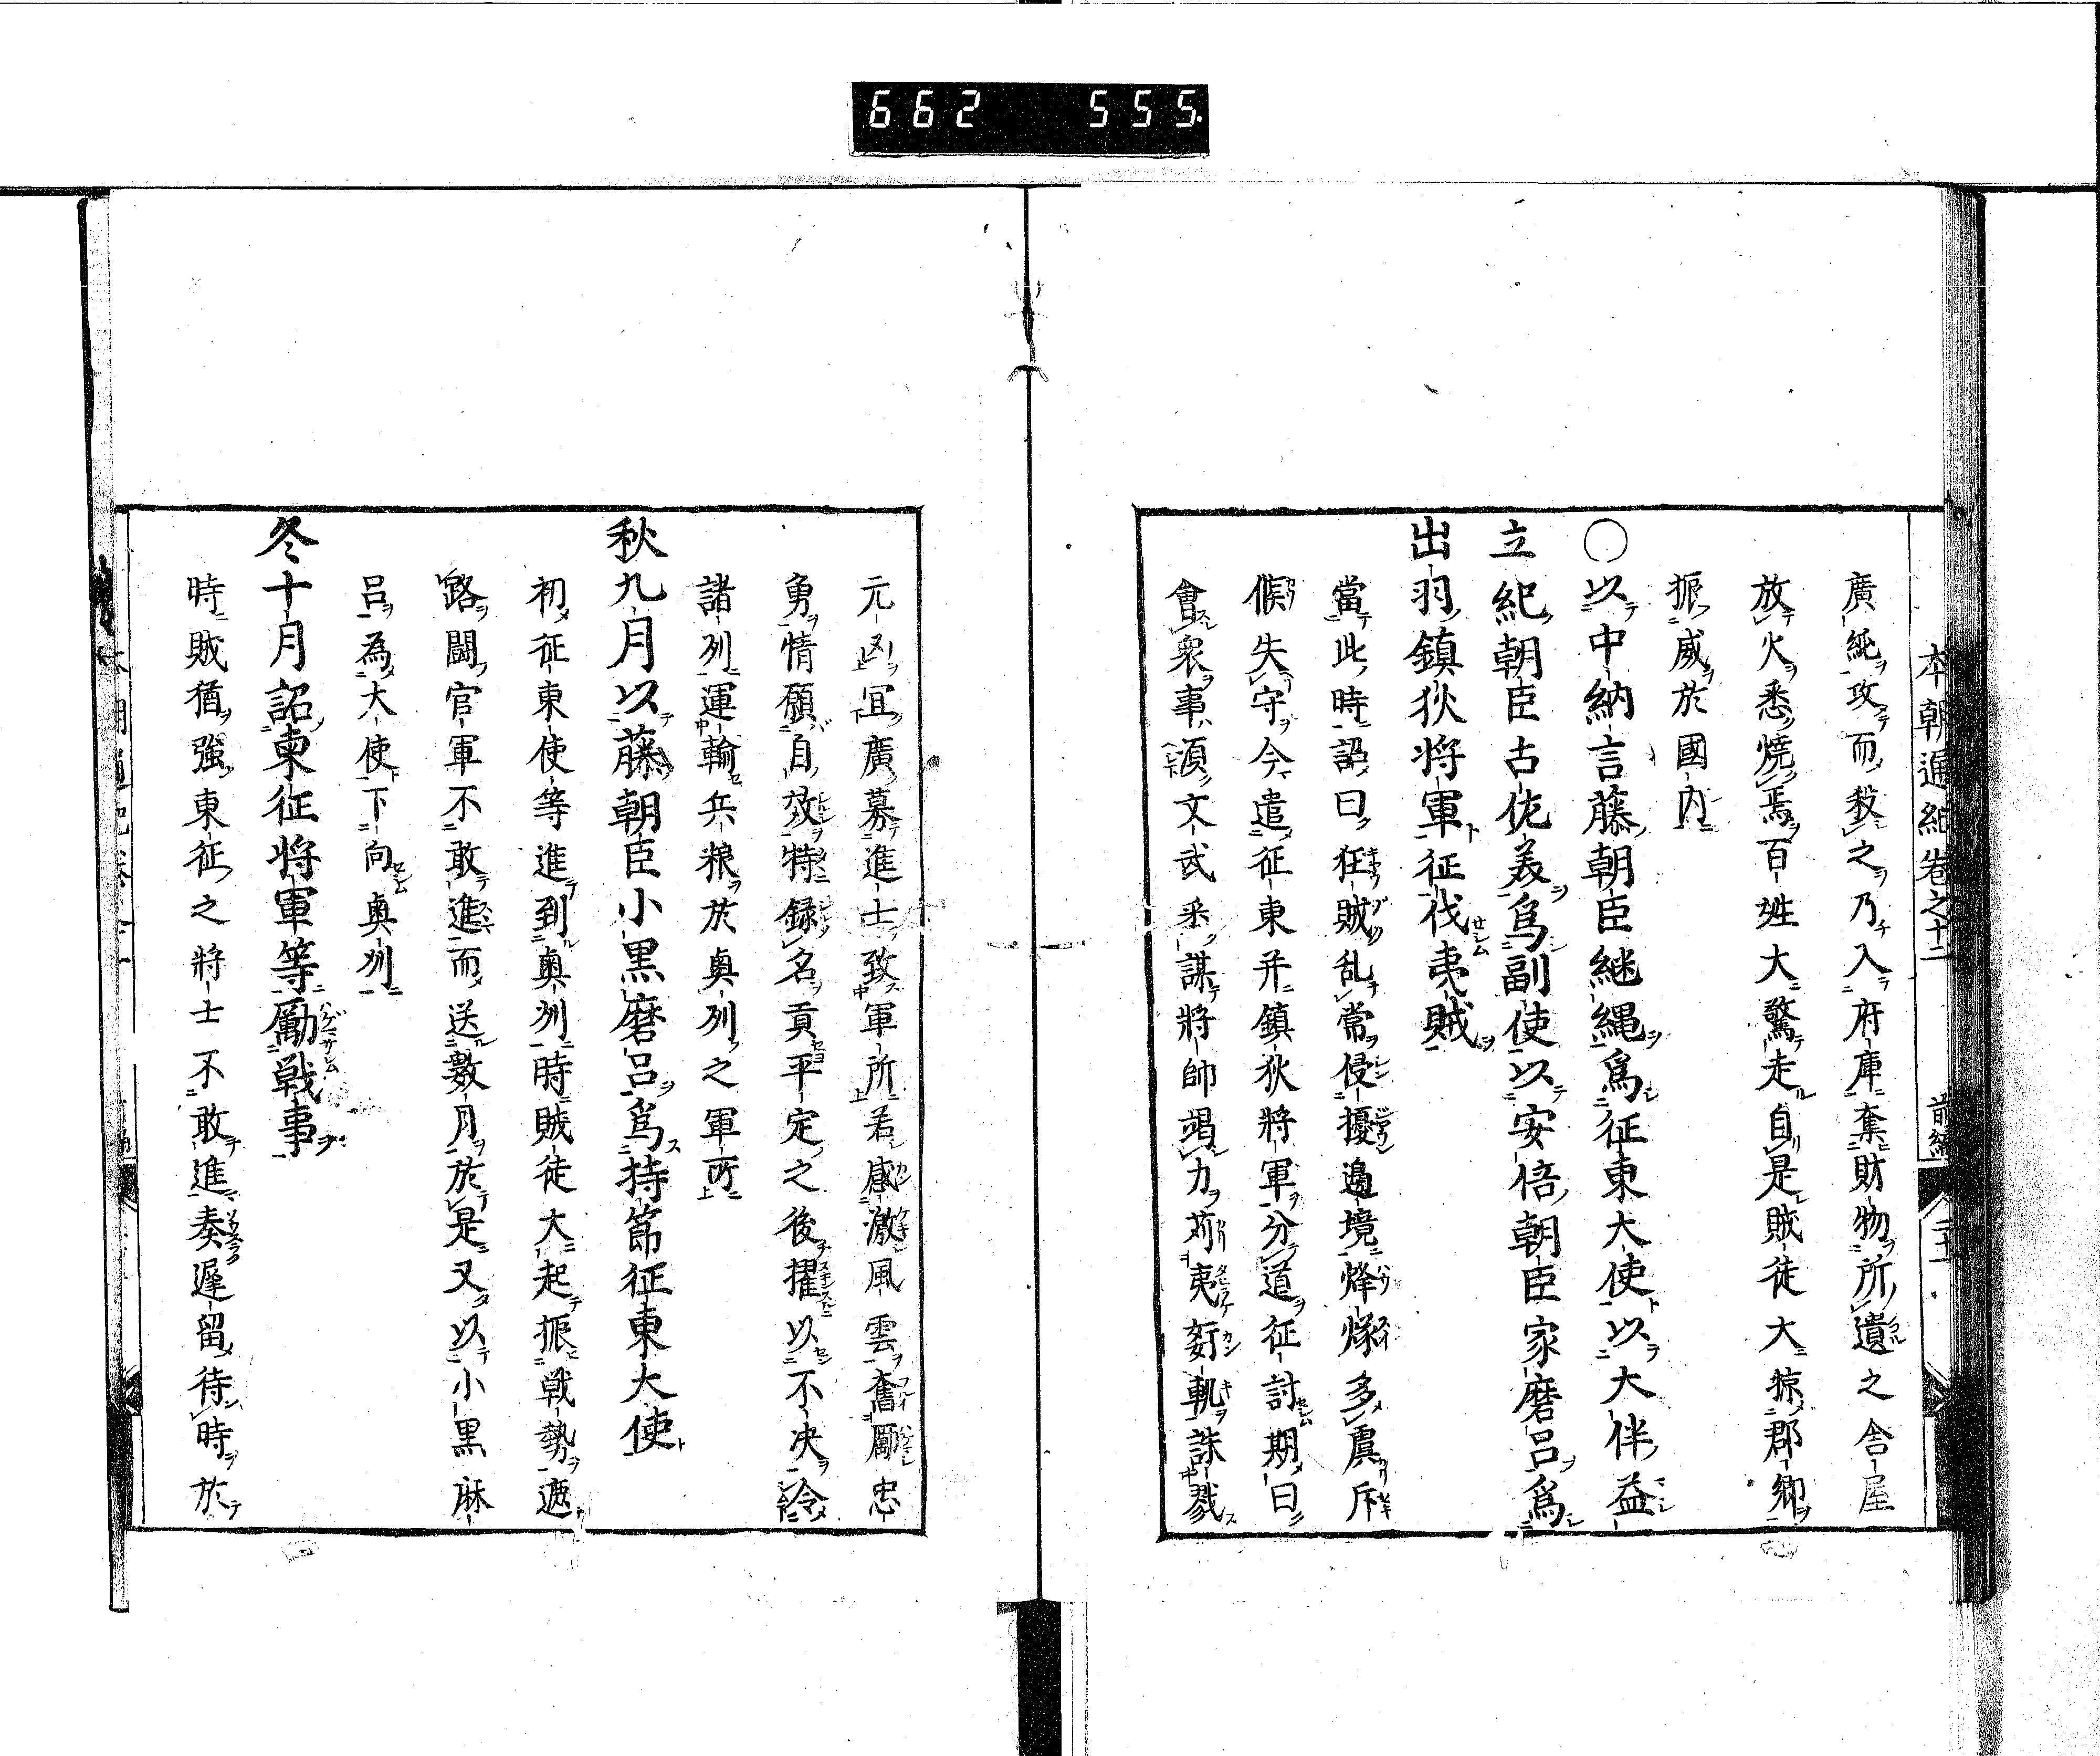 662 555.
本朝通紀卷之十二 前編 二十一
廣純攻而殺之乃入府庫奪財物所遺之舎屋
放火悉燒焉百姓大驚走自是賊徒大掠郡郷
振威於國内
〇以中納言藤朝臣継縄爲征東大使以大伴益
立紀朝臣古佐美爲副使以安倍朝臣家磨呂爲
出羽鎮狄将軍征伐夷賊
當此時詔曰狂賊乱常侵擾邉境烽燧多虞斥
候失守今遣征東并鎮狄將軍分道征討期日
會衆事須文武悉謀將帥竭力苅夷姧軌誅戮
元凶宜廣募進士致軍所若感激風雲奮厲忠
勇情願自效特録名貢平定之後擢以不次令
諸州運輸兵粮於奥州之軍所
秋九月以藤朝臣小黒磨呂爲持節征東大使
初征東使等進到奥州時賊徒大起振戦勢遮
路鬪官軍不敢進而送數月於是又以小黒麻
呂為大使下向奥州
冬十月詔東征将軍等勵戦事
時賊猶強東征之將士不敢進奏遲留待時於